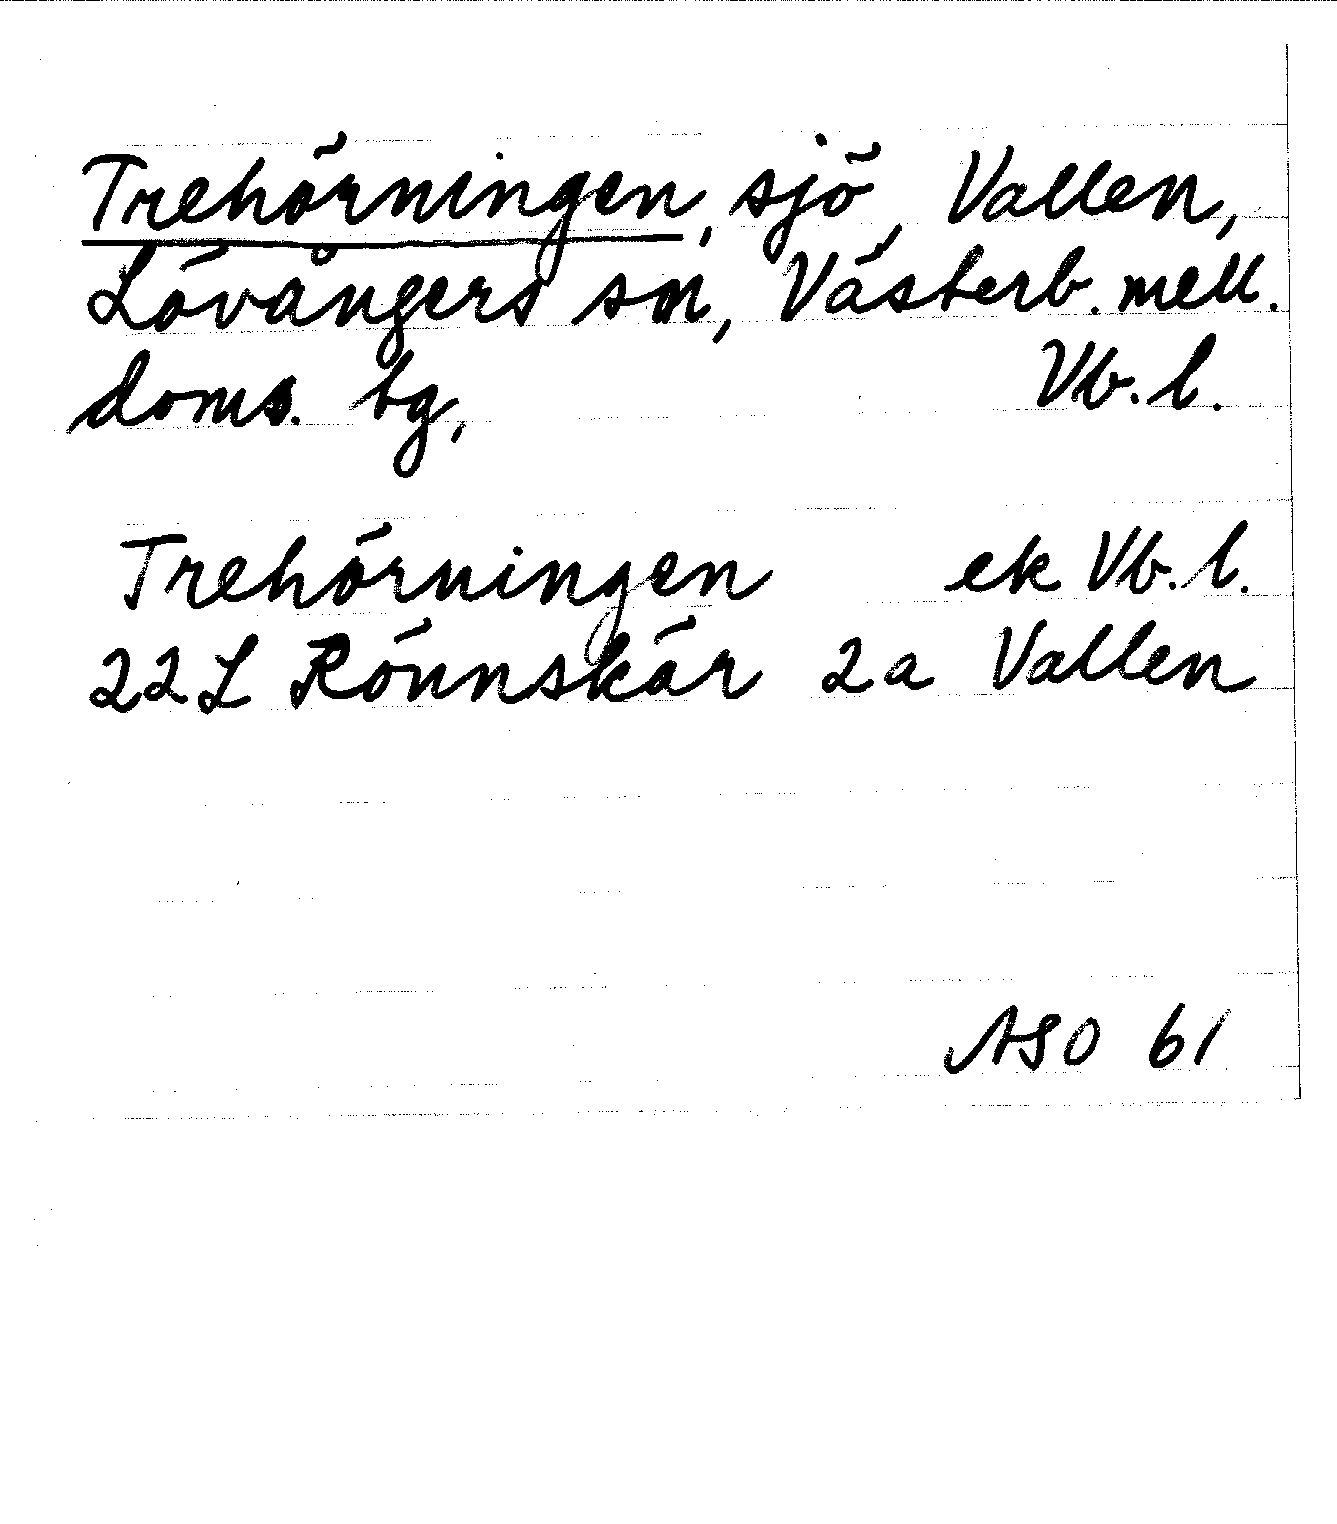 Trehörningen, sjö, Vallen,
Lövångers sn, Västerb. mell.
doms. tg, Vb. l.
Trehörningen ek Vb. l.
22L Rönnskär 2a Vallen
ASO 61